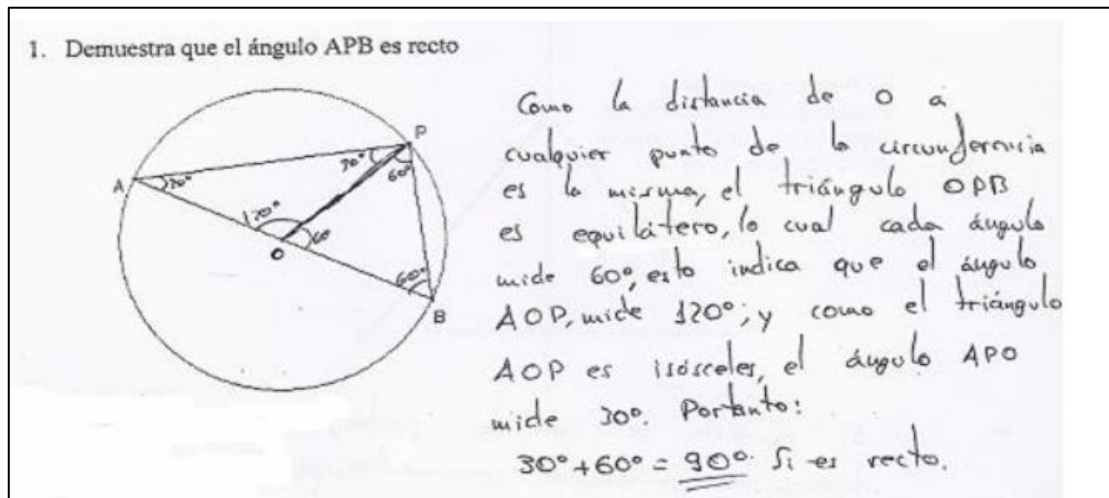 1. Demuestra que el ángulo APB es recto
Como la distancia de O a
cualquier punto de la circunferencia
es la misma, el triángulo OPB
es equilátero, lo cual cada ángulo
mide 60º, esto indica que el ángulo
AOP, mide 120º; y como el triángulo
AOP es isósceles, el ángulo APO
mide 30º. Portanto:
30º+60º = 90º. Si es recto.
P
30º
60º
A
30º
120º
60
O
60º
B